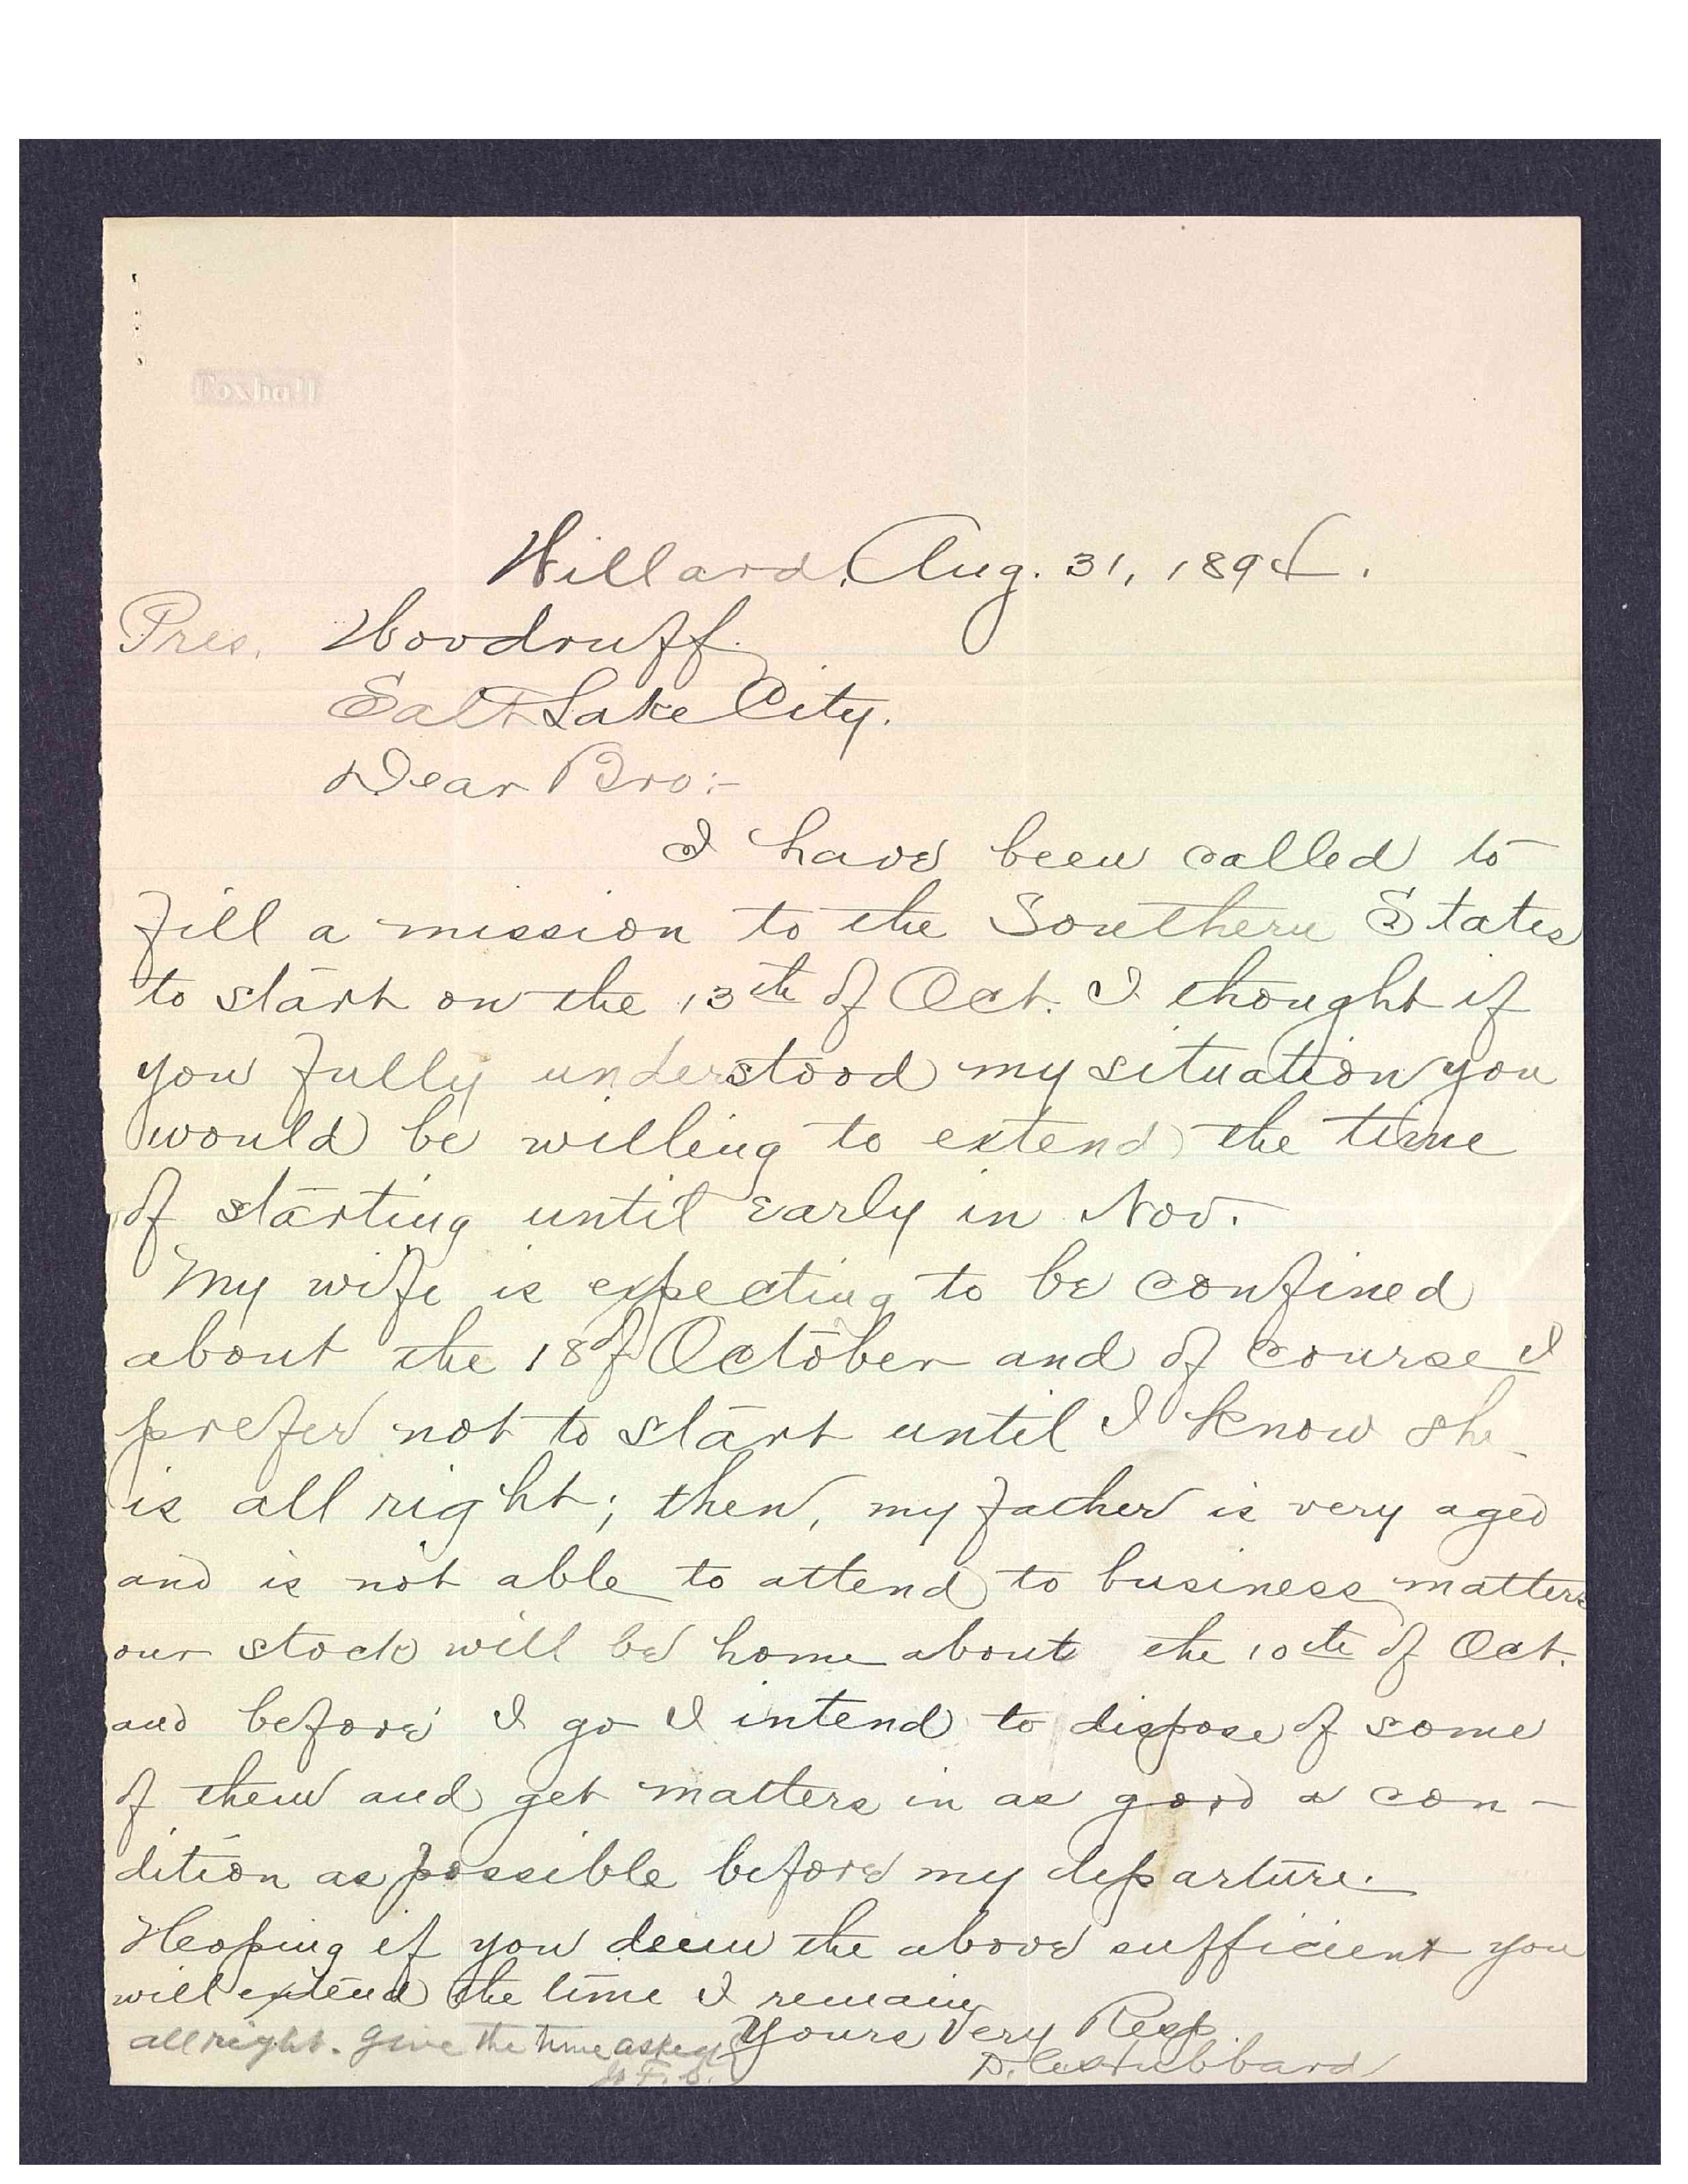 Foxhall
Willard, Aug. 31, 1894.
Pres. Woodruff.
Salt Lake City.
Dear Bro:-
I have been called to
fill a mission to the Southern States
to start on the 13th of Oct. I thought if
you fully understood my situation you
would be willing to extend the time
of starting until early in Nov.
My wife is expecting to be confined
about the 18 of October and of course I
prefer not to start until I know she
is all right; then, my father is very aged
and is not able to attend to business matters
our stock will be home about the 10th of Oct.
and before I go I intend to dispose of some
of them and get matters in as good a con-
dition as possible before my departure.
Hoping if you deem the above sufficient you
will extend the time I remain
Yours Very Resp.
D. Hubbard
all right. Give the time asked